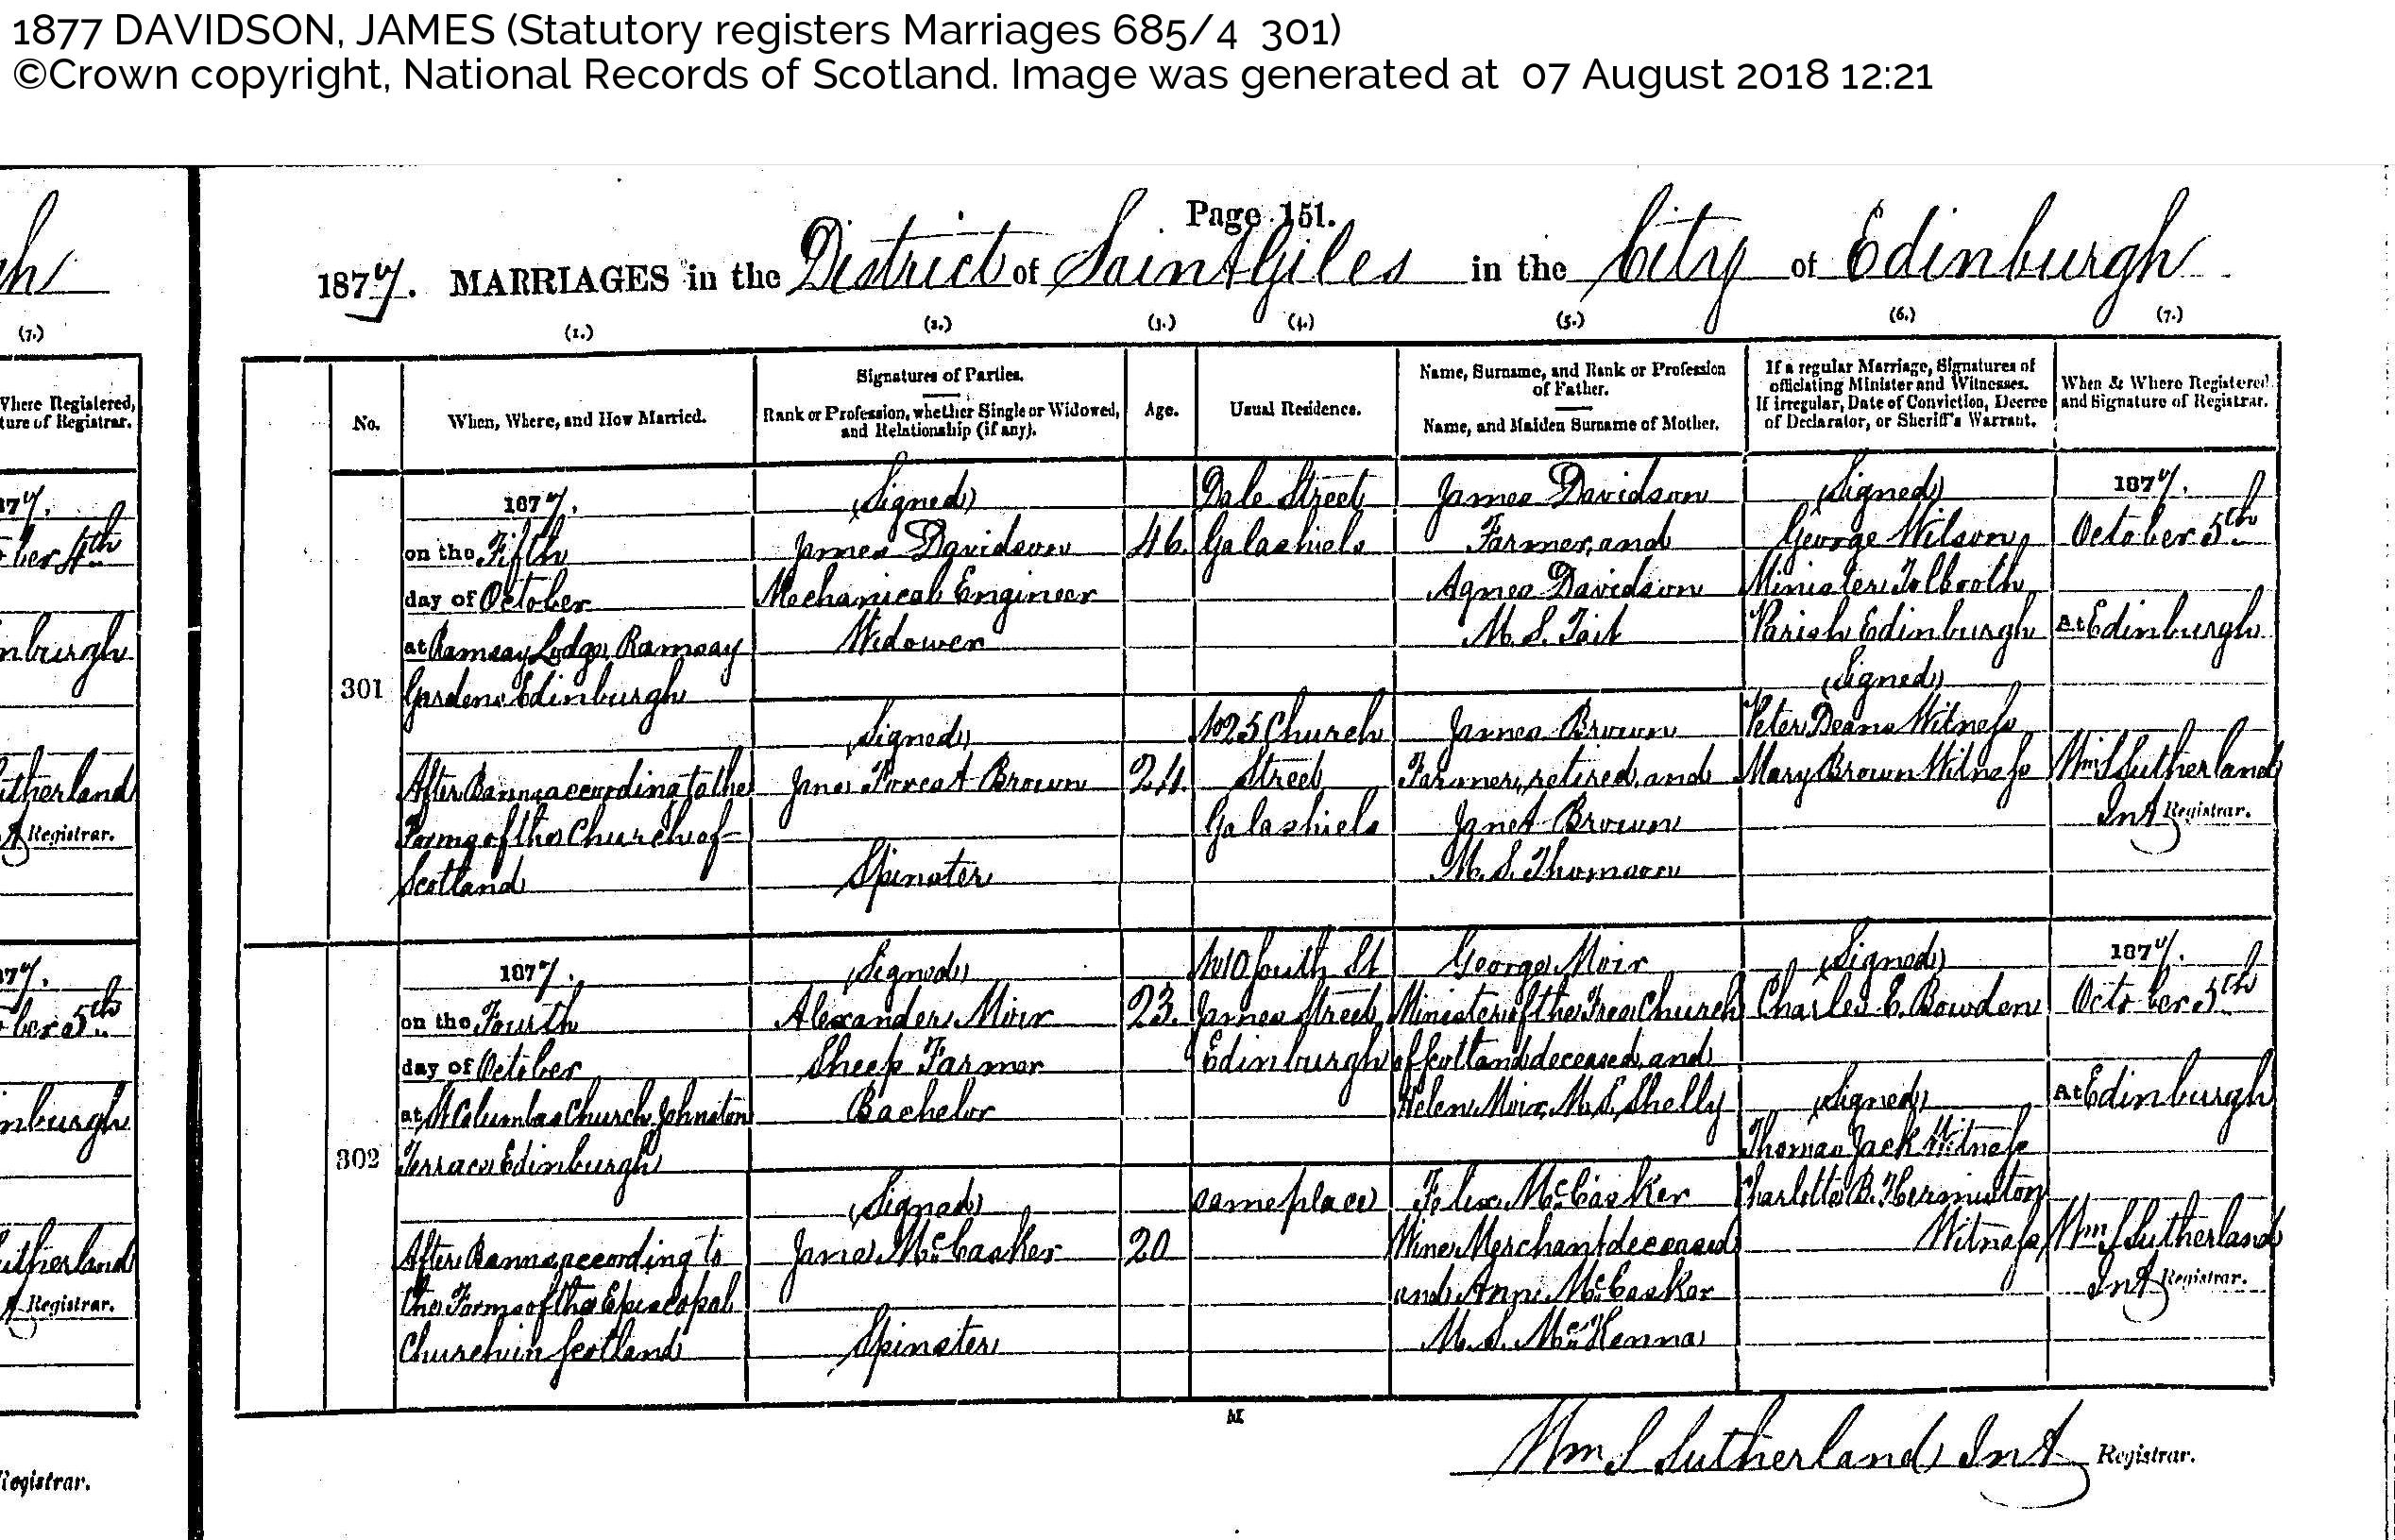 1877 DAVIDSON, JAMES (Statutory registers Marriages 685/4 301)
©Crown copyright, National Records of Scotland. Image was generated at 07 August 2018 12:21
Page 151.
1877. MARRIAGES in the District of Saint Giles in the City of Edinburgh
(7.) (1.) (2.) (3.) (4.) (5.) (6.) (7.)
No.
When, Where, and How Married.
Signatures of Parties.
Rank or Profession, whether Single or Widowed,
and Relationship (if any).
Age.
Usual Residence.
Name, Surname, and Rank or Profession
of Father.
Name, and Maiden Surname of Mother.
If a regular Marriage, Signatures of
officiating Minister and Witnesses.
If irregular, Date of Conviction, Decree
of Declarator, or Sheriff's Warrant.
When & Where Registered
and Signature of Registrar.
301
1877.
on the Fifth
day of October
at Ramsay Lodge Ramsay
Gardens Edinburgh
After Banns according to the
Forms of the Church of
Scotland
(Signed)
James Davidson
Mechanical Engineer
Widower
(Signed)
Jane Forrest Brown
Spinster
46.
24.
Dale Street
Galashiels
No 25 Church
Street
Galashiels
James Davidson
Farmer, and
Agnes Davidson
M.S. Tait
James Brown
Farmer, retired, and
Janet Brown
M.S. Thomson
(Signed)
George Wilson,
Minister Tolbooth
Parish Edinburgh
(Signed)
Peter Deans Witness
Mary Brown Witness
1877.
October 5th
At Edinburgh
Wm S Sutherland
Int Registrar.
302
1877.
on the Fourth
day of October
at St Columbas Church Johnston
Terrace Edinburgh
After Banns according to
the Forms of the Episcopal
Church in Scotland
(Signed)
Alexander Moir
Sheep Farmer
Bachelor
(Signed)
Jane McCasker
Spinster
23.
20
No 10 South St
James Street
Edinburgh
same place
George Moir
Minister of the Free Church
of Scotland deceased, and
Helen Moir, M.S. Shelly
Felix McCasker
Wine Merchant deceased
and Ann McCasker
M.S. McKenna
(Signed)
Charles E. Bowden
(Signed)
Thomas Jack Witness
Charlotte B. Hermiston
Witness
1877.
October 5th
At Edinburgh
Wm S Sutherland
Int Registrar.
Wm S Sutherland Int Registrar.
Where Registered,
ture of Registrar.
Registrar.
Registrar.
Registrar.